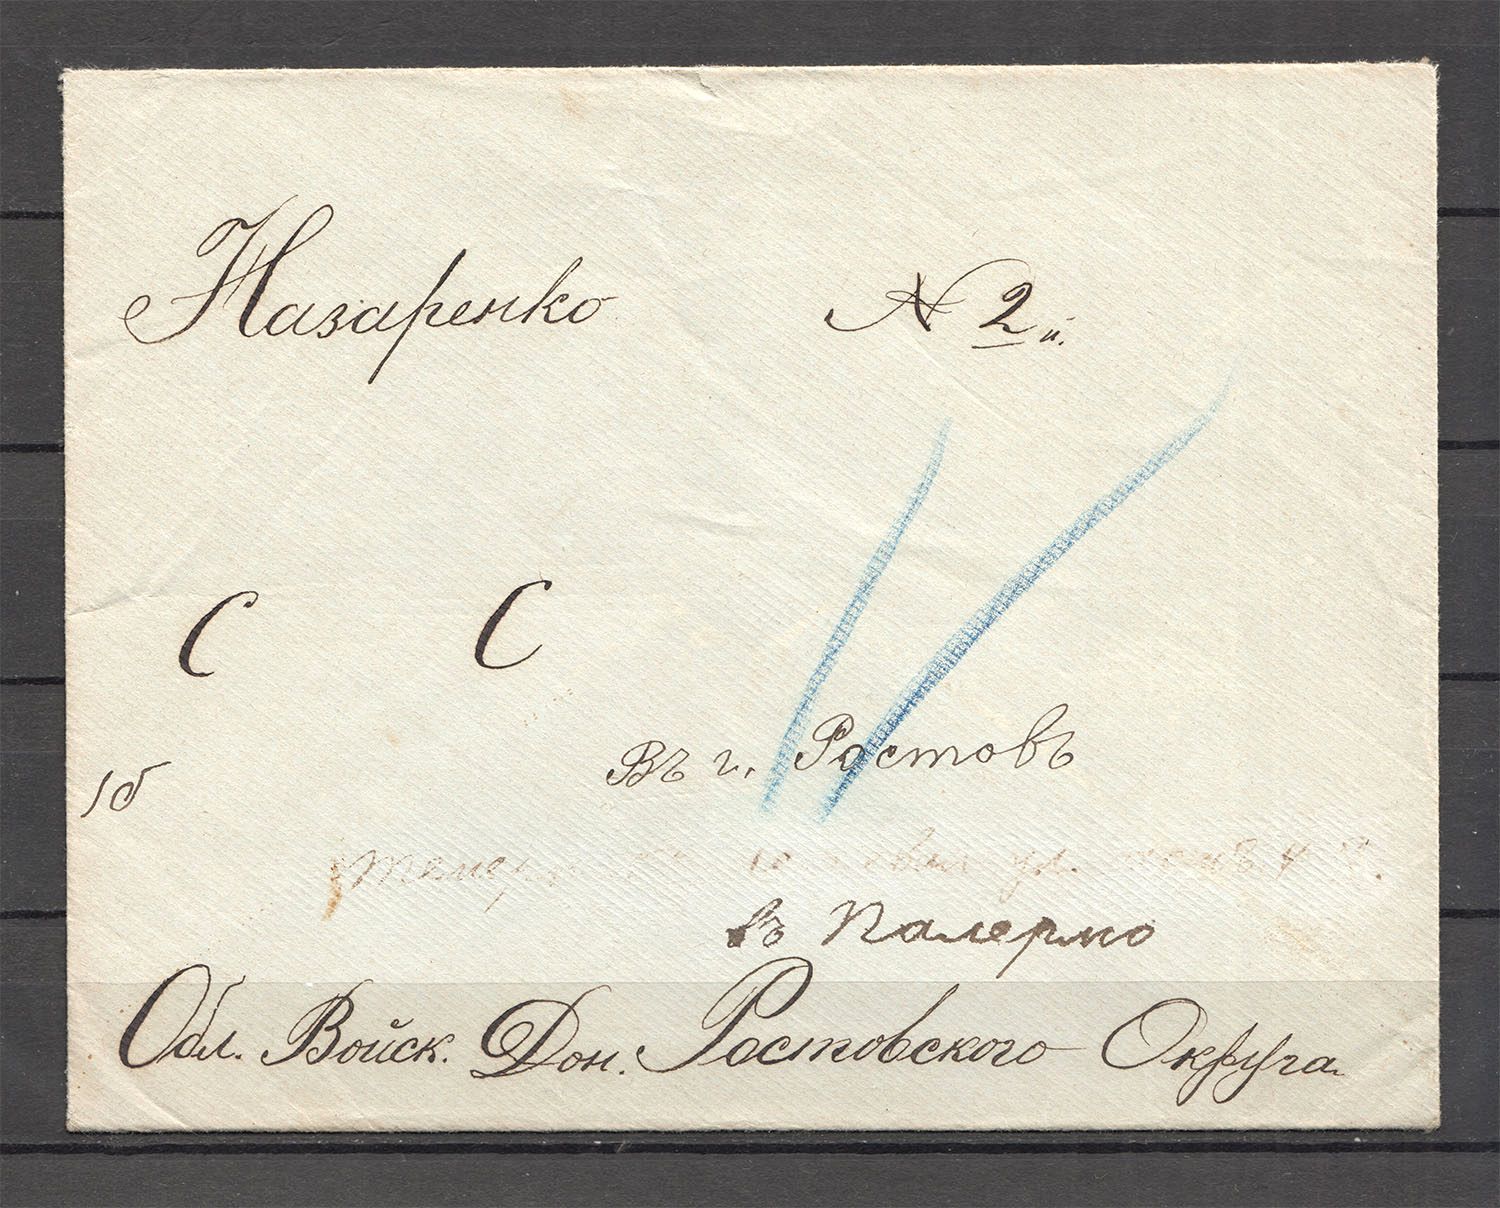 Назаренко № 2й.
С С
въ г. Ростовъ
1б
ул.
въ Палермо
Обл. Войск. Дон. Ростовского Округа